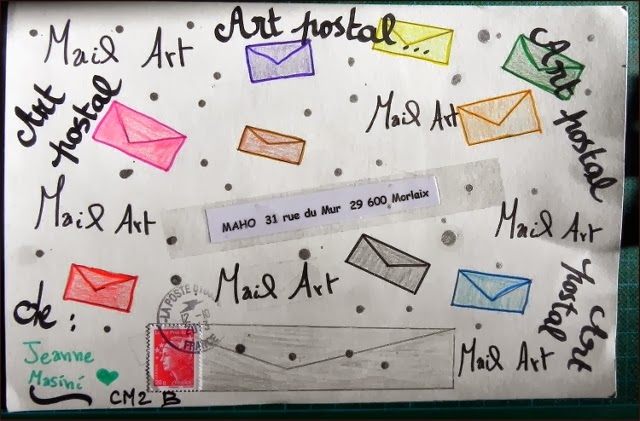 Mail Art
Art postal...
Art postal
Art
postal
Mail Art
Mail Art
MAHO 31 rue du Mur 29 600 Morlaix
Mail Art
Mail Art
Art
postal
de :
LA POSTE
FRANCE
Jeanne
Masini
CM2 B
Mail Art